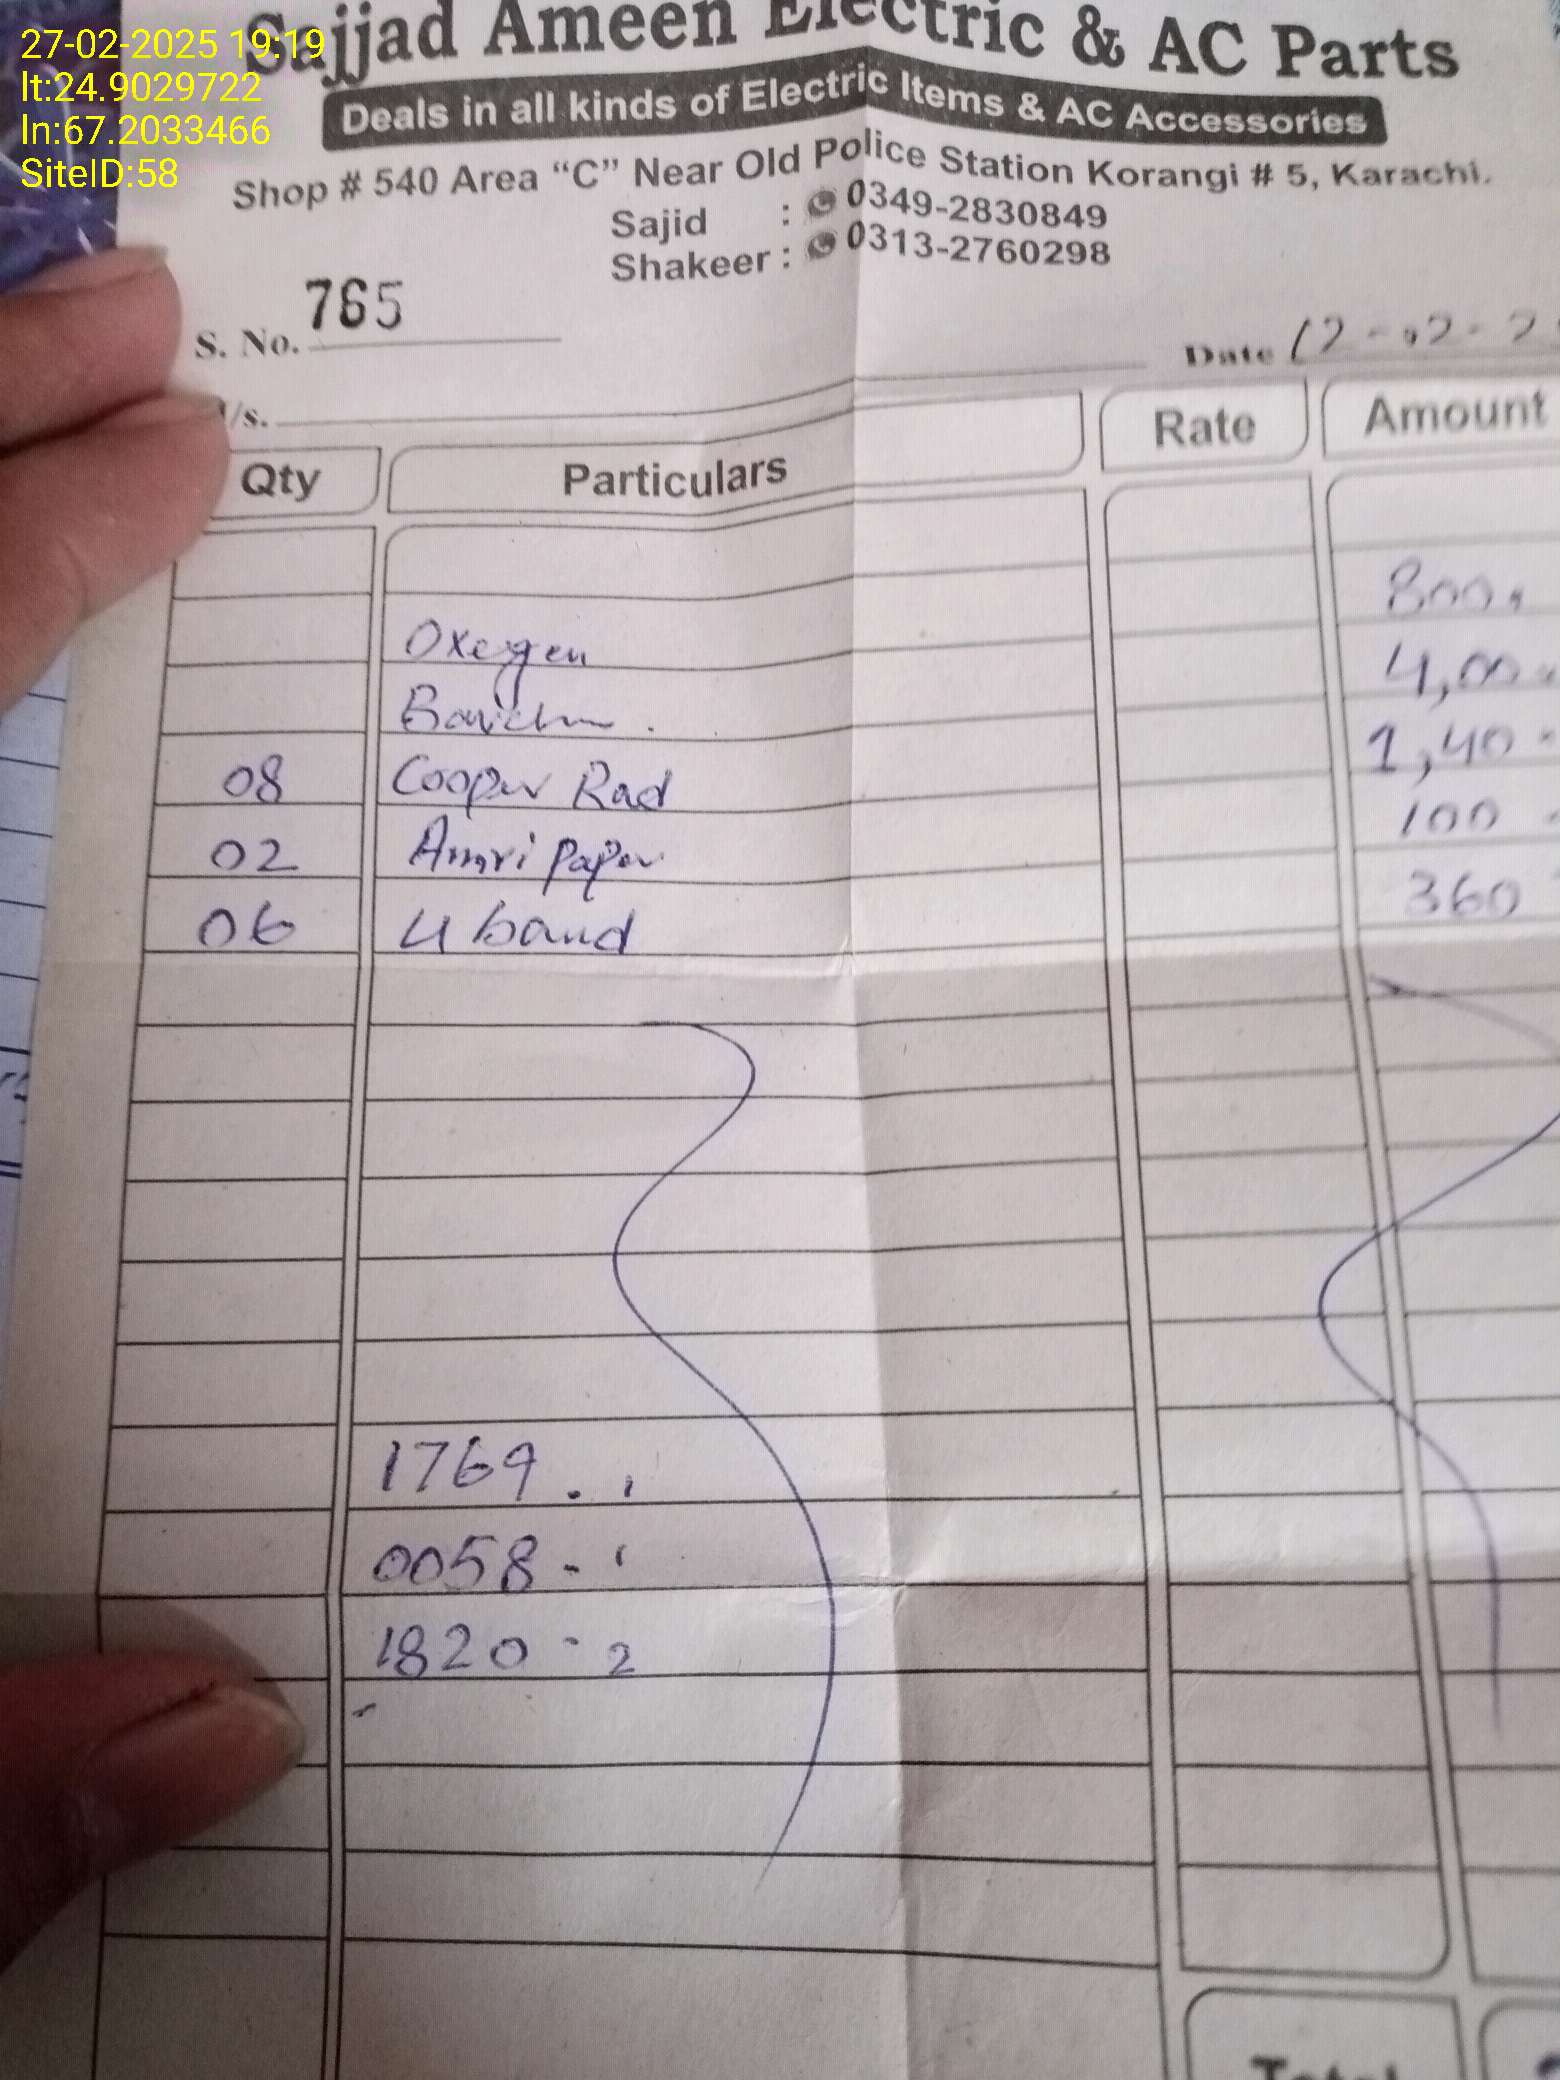 27-02-2025 19:19
lt:24.9029722
ln:67.2033466
SiteID:58
Sajjad Ameen Electric & AC Parts
Deals in all kinds of Electric Items & AC Accessories
Shop # 540 Area “C” Near Old Police Station Korangi # 5, Karachi.
Sajid : 0349-2830849
Shakeer : 0313-2760298
S. No. 765
Date 12-02-2
/s.
Qty Particulars Rate Amount
Oxegen 800
4,00
08 Cooper Rad 1,40
02 Amri paper 100
06 U band 360
1769
0058
1820 - 2
Total